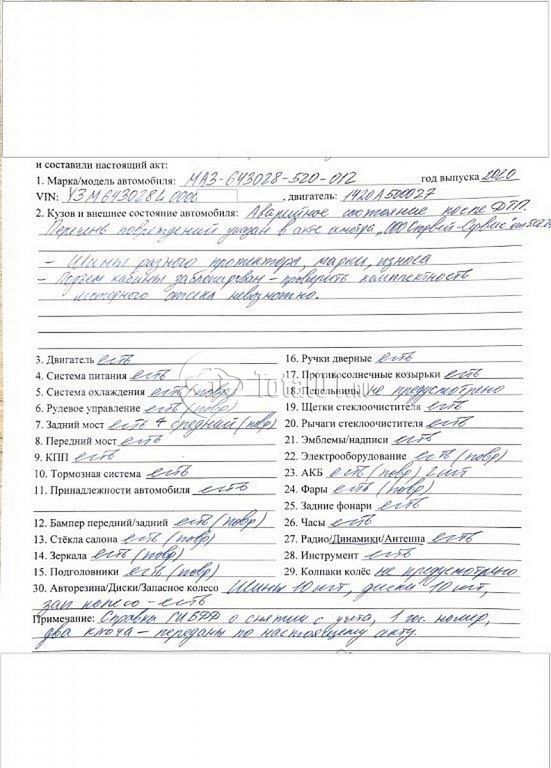 и составили настоящий акт:
1. Марка/модель автомобиля: МАЗ-643028-520-012 год выпуска 2020
VIN: Y3M643028L000 , двигатель: 1420A500027
2. Кузов и внешнее состояние автомобиля: Аварийное состояние после ДТП.
Перечень повреждений указан в акте осмотра „ООО Сюрвей-Сервис" от
- Шины разного протектора, марки, износа
- Подъем кабины заблокирован - проверить комплектность
моторного отсека невозможно.
3. Двигатель есть
4. Система питания есть
5. Система охлаждения есть (повр)
6. Рулевое управление есть (повр)
7. Задний мост есть + средний (повр)
8. Передний мост есть
9. КПП есть
10. Тормозная система есть
11. Принадлежности автомобиля есть
12. Бампер передний/задний есть (повр)
13. Стёкла салона есть (повр)
14. Зеркала есть (повр)
15. Подголовники есть (повр)
16. Ручки дверные есть
17. Противосолнечные козырьки есть
18. Пепельницы не предусмотрено
19. Щетки стеклоочистителя есть
20. Рычаги стеклоочистителя есть
21. Эмблемы/надписи есть
22. Электрооборудование есть (повр)
23. АКБ есть (повр) 2 шт
24. Фары есть (повр)
25. Задние фонари есть
26. Часы есть
27. Радио/Динамики/Антенна есть
28. Инструмент есть
29. Колпаки колёс не предусмотрено
30. Авторезина/Диски/Запасное колесо Шины 10 шт, диски 10 шт,
зап колесо - есть
Примечание: Справка ГИБДД о снятии с учета, 1 гос. номер,
два ключа - переданы по настоящему акту.
Total01.ru